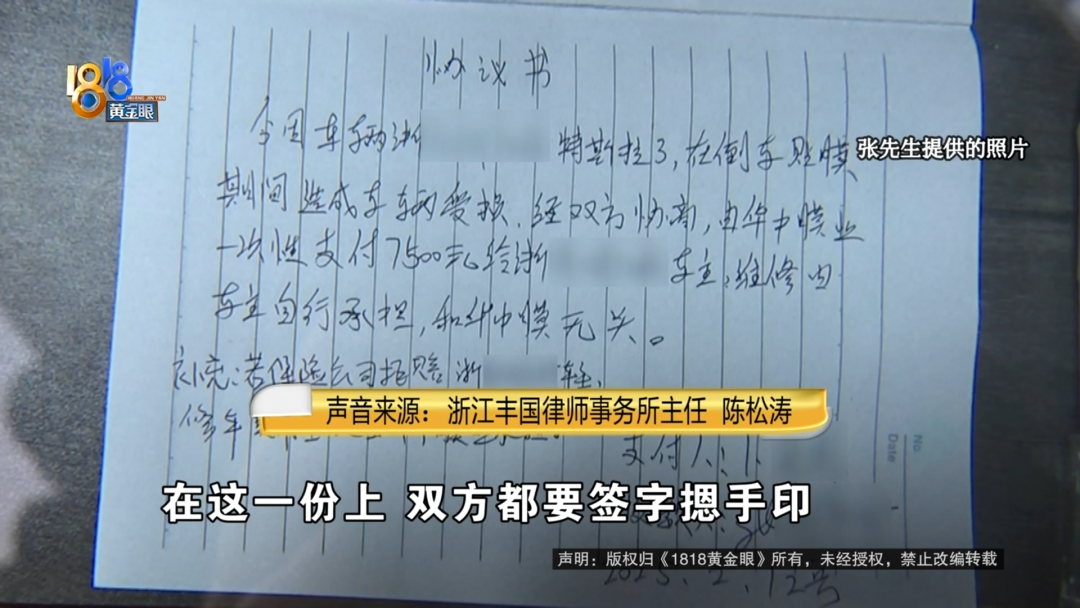 协议书
1818
HUANG JIN YAN
黄金眼
今因车辆浙
特斯拉3,在倒车贴膜
张先生提供的照片
期间造成车辆受损,经双方协商,由华中膜业
一次性支付7500元给浙
车主,维修由
车主自行承担,和华中膜无关。
补充:若保险公司拒赔浙
车主,
修车
声音来源:浙江丰国律师事务所主任 陈松涛
支付人:
No
Date
在这一份上 双方都要签字摁手印
声明:版权归《1818黄金眼》所有,未经授权,禁止改编转载
2025.2.12号